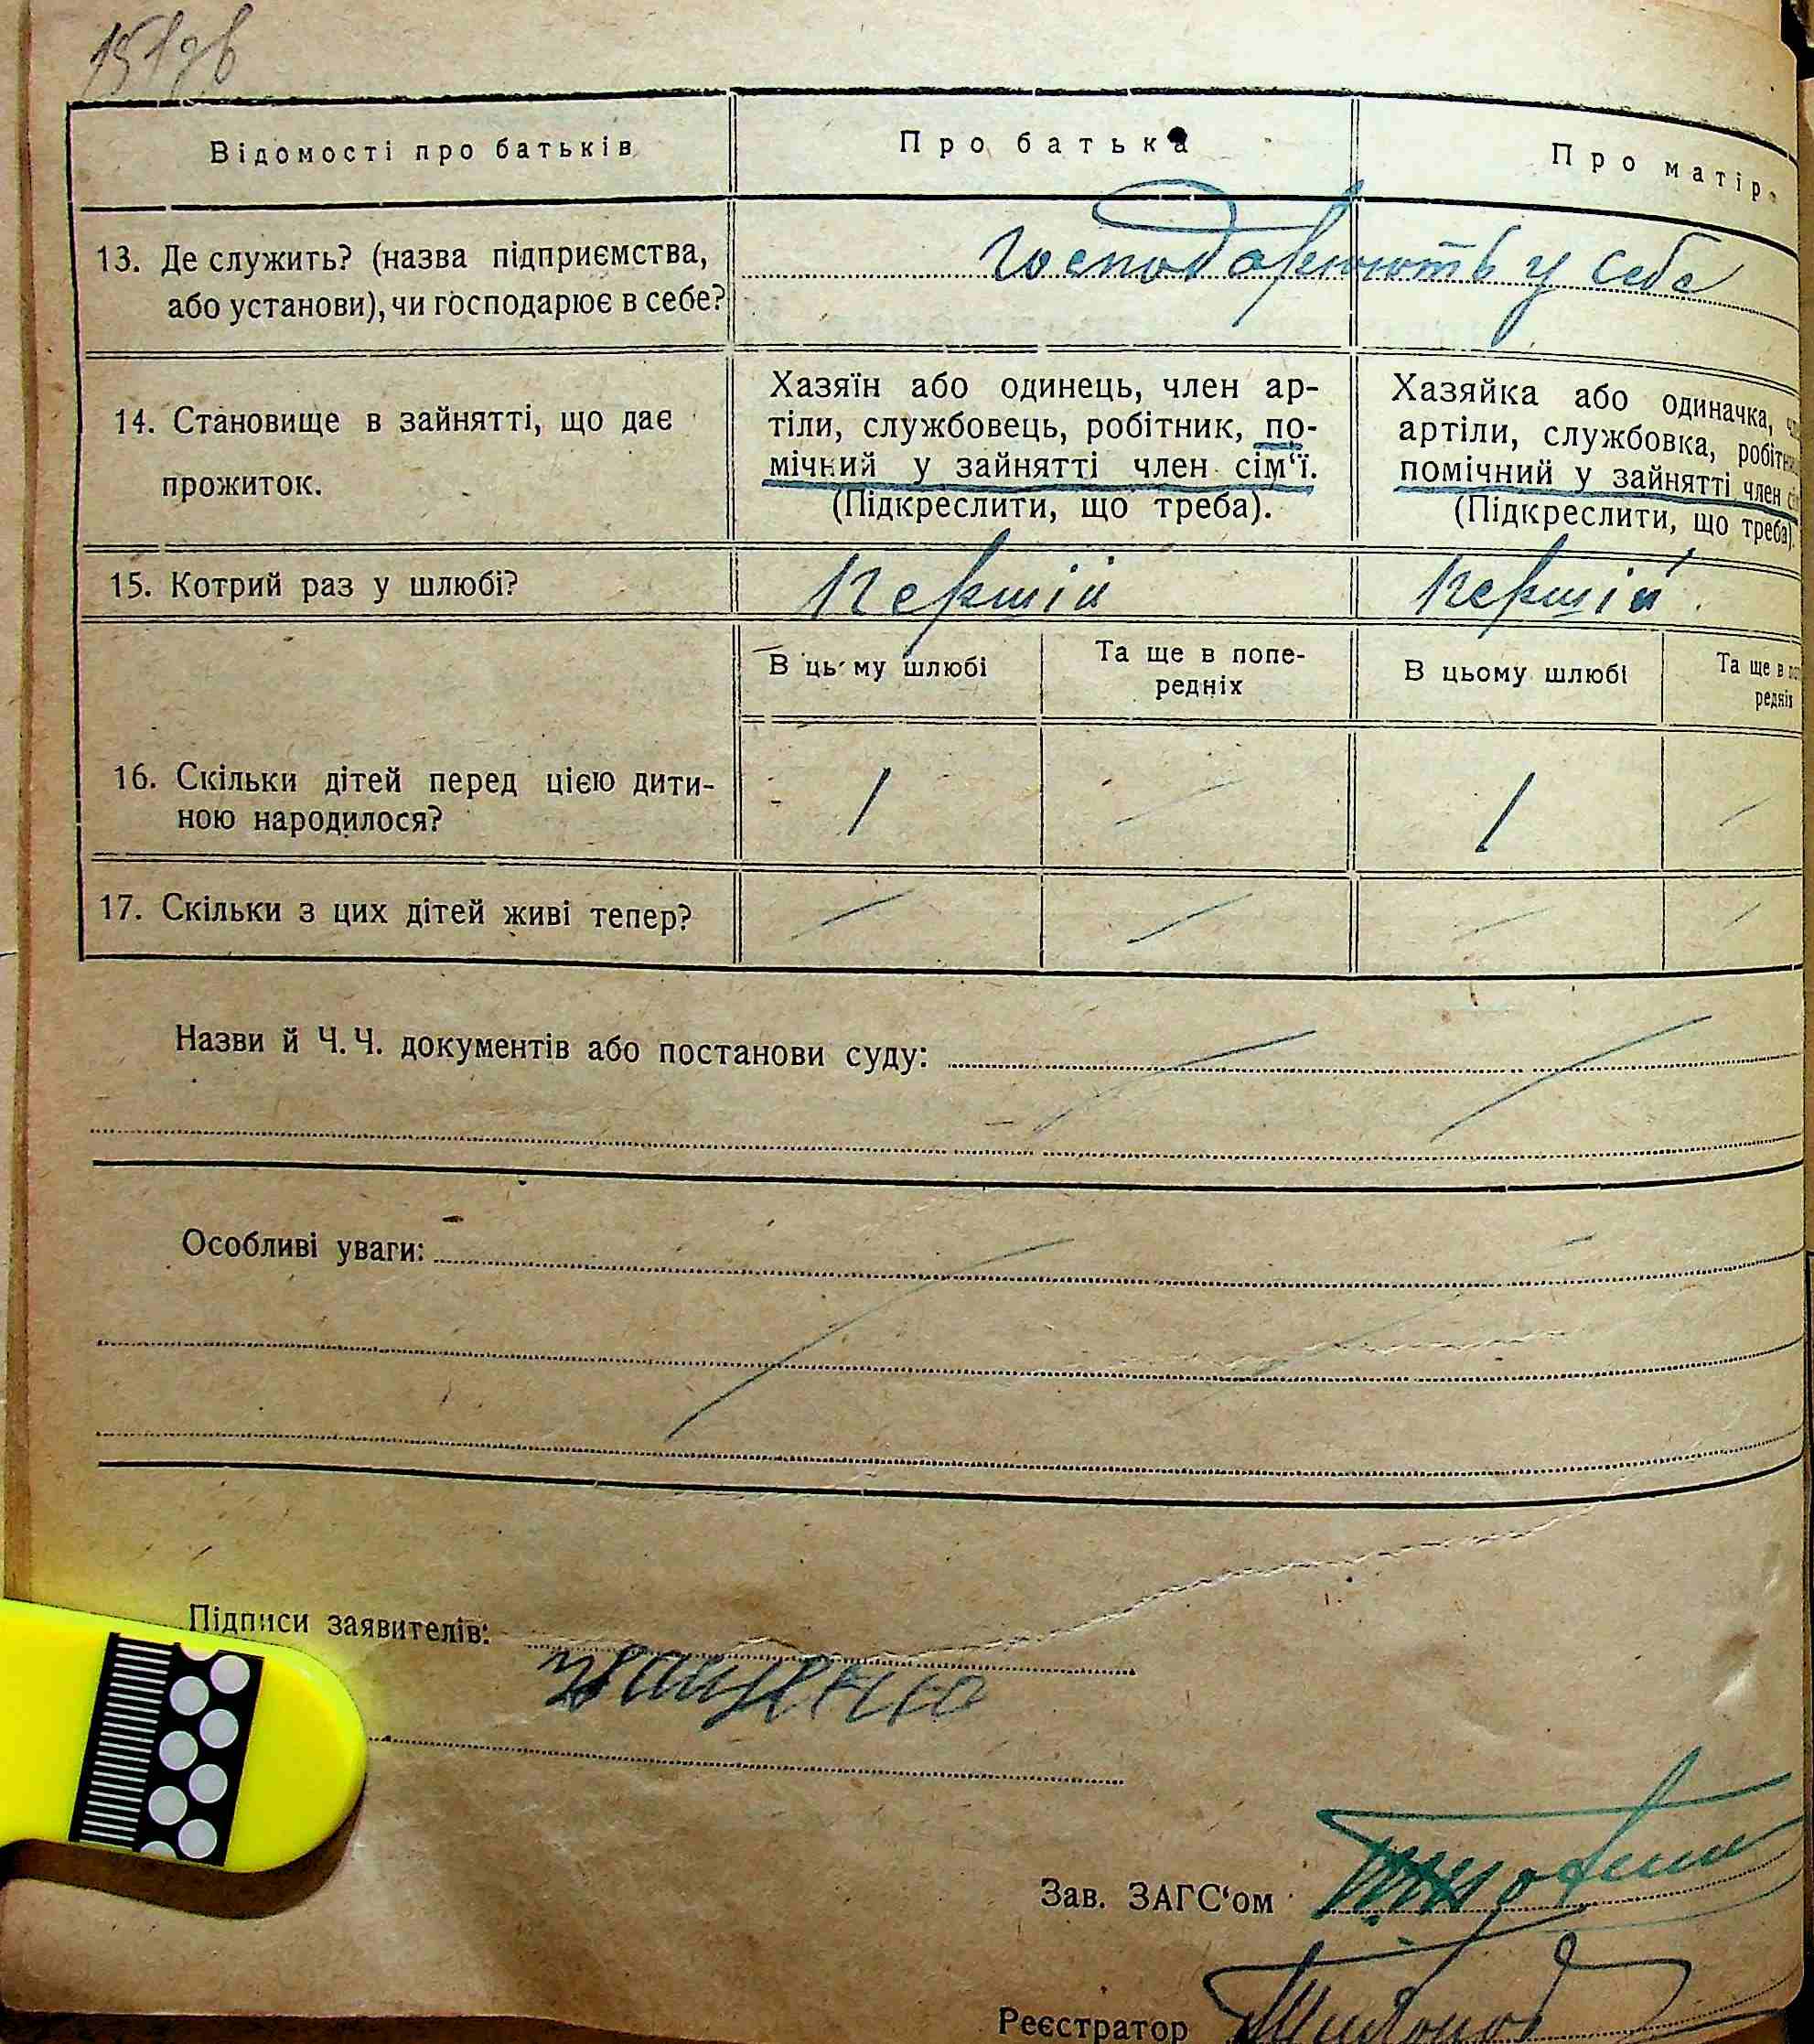 Відомості про батьків
Про батька
Про матір
13. Де служить? (назва підприємства,
або установи), чи господарює в себе?
Господарюють у себе
14. Становище в зайнятті, що дає
прожиток.
Хазяїн або одинець, член ар-
тіли, службовець, робітник, по-
мічний у зайнятті член сім‘ї.
(Підкреслити, що треба).
Хазяйка або одиначка,
артіли, службовка,
помічний у зайнятті член
(Підкреслити, що треба).
15. Котрий раз у шлюбі?
Першій
Першій
В цьму шлюбі
Та ще в попе-
редніх
В цьому шлюбі
Та ще в
редніх
16. Скільки дітей перед цією дити-
ною народилося?
1
—
1
—
17. Скільки з цих дітей живі тепер?
—
—
—
—
Назви й Ч.Ч. документів або постанови суду:
Особливі уваги:
Підписи заявителів:
Іващенко
Зав. ЗАГС‘ом
Реєстратор